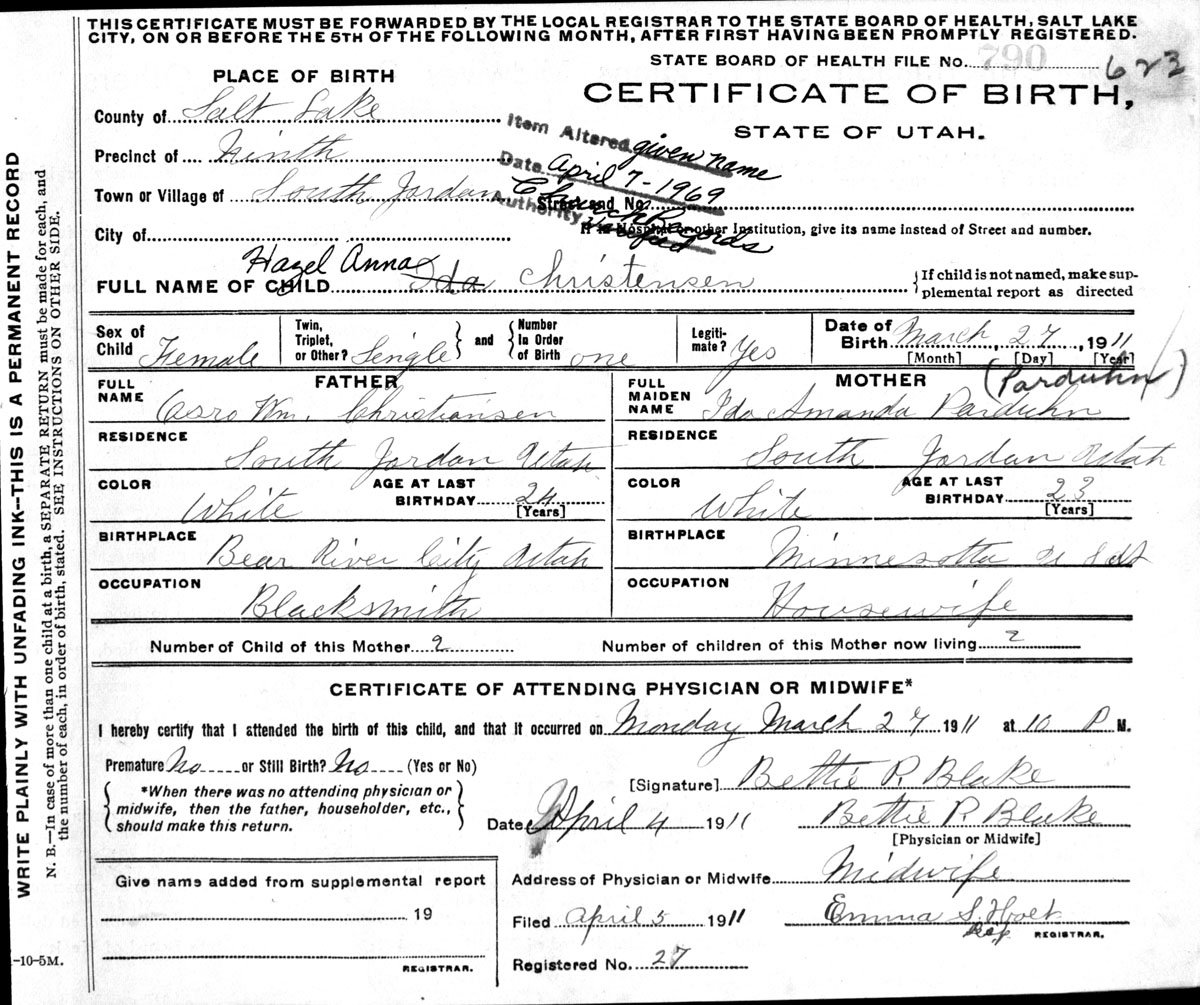 THIS CERTIFICATE MUST BE FORWARDED BY THE LOCAL REGISTRAR TO THE STATE BOARD OF HEALTH, SALT LAKE
CITY, ON OR BEFORE THE 5TH OF THE FOLLOWING MONTH, AFTER FIRST HAVING BEEN PROMPTLY REGISTERED.
STATE BOARD OF HEALTH FILE NO. 790 623
PLACE OF BIRTH
CERTIFICATE OF BIRTH,
STATE OF UTAH.
County of Salt Lake
Precinct of Ninth
Town or Village of South Jordan
Street and No.
City of
If in Hospital or other Institution, give its name instead of Street and number.
Item Altered given name
Date April 7-1969
Authority Church Records
Hazel Anna
FULL NAME OF CHILD Ida Christensen
{If child is not named, make sup-
plemental report as directed
Sex of Child Female
Twin, Triplet, or Other? Single } and { Number In Order of Birth one
Legiti-mate? Yes
Date of Birth March, 27, 1911
[Month] [Day] [Year]
FATHER
FULL NAME Asro Wm. Christiansen
RESIDENCE South Jordan Utah
COLOR White AGE AT LAST BIRTHDAY 24 [Years]
BIRTHPLACE Bear River City Utah
OCCUPATION Blacksmith
MOTHER (Parduhn)
FULL MAIDEN NAME Ida Amanda Parduhn
RESIDENCE South Jordan Utah
COLOR White AGE AT LAST BIRTHDAY 23 [Years]
BIRTHPLACE Minnesotta U S A
OCCUPATION Housewife
Number of Child of this Mother 2
Number of children of this Mother now living 2
CERTIFICATE OF ATTENDING PHYSICIAN OR MIDWIFE*
I hereby certify that I attended the birth of this child, and that it occurred on Monday March 27 1911 at 10 P M.
Premature No or Still Birth? No (Yes or No)
{ *When there was no attending physician or
midwife, then the father, householder, etc.,
should make this return. }
[Signature] Bettie P. Blake
Date April 4 1911
Bettie P Blake
[Physician or Midwife]
Give name added from supplemental report
19
REGISTRAR.
Address of Physician or Midwife Midwife
Filed April 5 1911
Emma S. Holt
REGISTRAR.
Registered No. 27
-10-5M.
WRITE PLAINLY WITH UNFADING INK—THIS IS A PERMANENT RECORD
N. B.—In case of more than one child at a birth, a SEPARATE RETURN must be made for each, and
the number of each, in order of birth, stated. SEE INSTRUCTIONS ON OTHER SIDE.